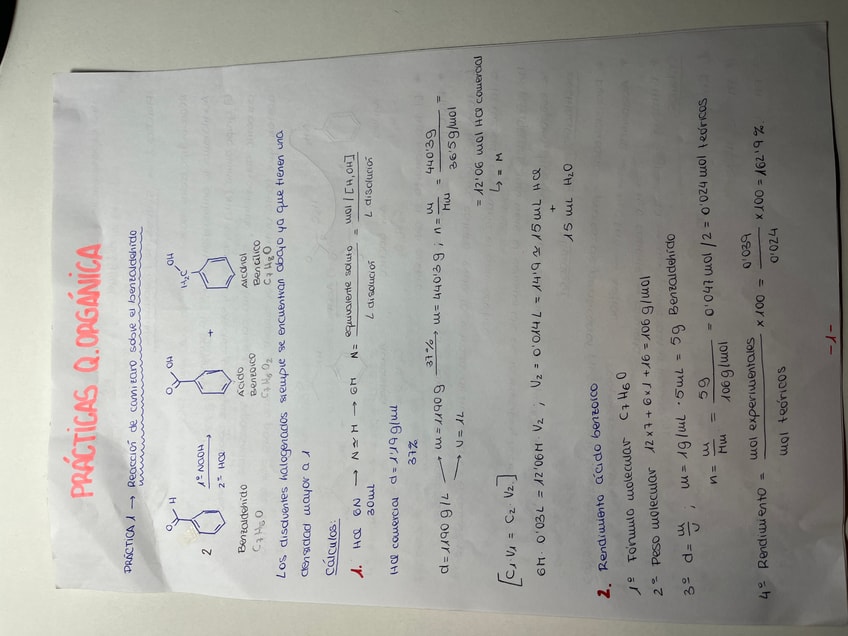 PRÁCTICAS Q.ORGÁNICA
PRÁCTICA 1 → Reacción de cannizaro sobre el benzaldehido
O H
O OH
H₂C OH
2 1º NaOH 2º HCl +
Benzaldehido Ácido Benzoico Alcohol Bencílico
C₇H₆O C₇H₆O₂ C₇H₈O
Los disolventes halogenados siempre se encuentran abajo ya que tienen una
densidad mayor a 1
Cálculos:
1. HCl 6N → N≈M → 6M N = equivalente soluto / L disolución = mol / [H, OH] / L disolución
30mL
HCl comercial d = 1'19 g/mL
37%
d = 1190 g/L → m = 1190 g 37% → m = 440'3g ; n = m / Mw = 440'3g / 36'5g/mol =
→ V = 1L
= 12'06 mol HCl comercial
↳ = M
[C₁V₁ = C₂ V₂]
6M · 0'03L = 12'06M V₂ , V₂ = 0'014L = 14'9 ≈ 15mL HCl
+
15 mL H₂O
2. Rendimiento ácido benzoico
1º Fórmula molecular C₇H₆O
2º Peso molecular 12x7 + 6x1 + 16 = 106 g/mol
3º d = m / V ; m = 1g/mL · 5mL = 5g Benzaldehido
n = m / Mw = 5g / 106g/mol = 0'047mol /2 = 0'024 mol teóricos
4º Rendimiento = mol experimentales / mol teóricos x100 = 0'039 / 0'024 x100 = 162'9%
-1-